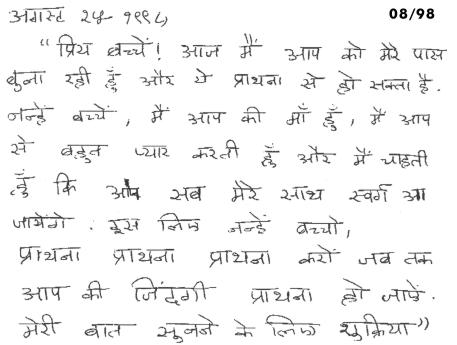 अगस्ट २५ १९९८
08/98
“प्रिय बच्चें! आज मैं आप को मेरे पास
बुला रही हूँ और ये प्राथना से हो सक्ता है.
नन्हें बच्चें, मैं आप की माँ हूँ, मैं आप
से बहुत प्यार करती हूँ और मैं चाहती
हूँ कि आप सब मेरे साथ स्वर्ग आ
जायेंगे. इस लिए नन्हें बच्चो,
प्राथना प्राथना प्राथना करों जब तक
आप की जिंदगी प्राथना हो जाऐं.
मेरी बात सुनने के लिए शुक्रिया”